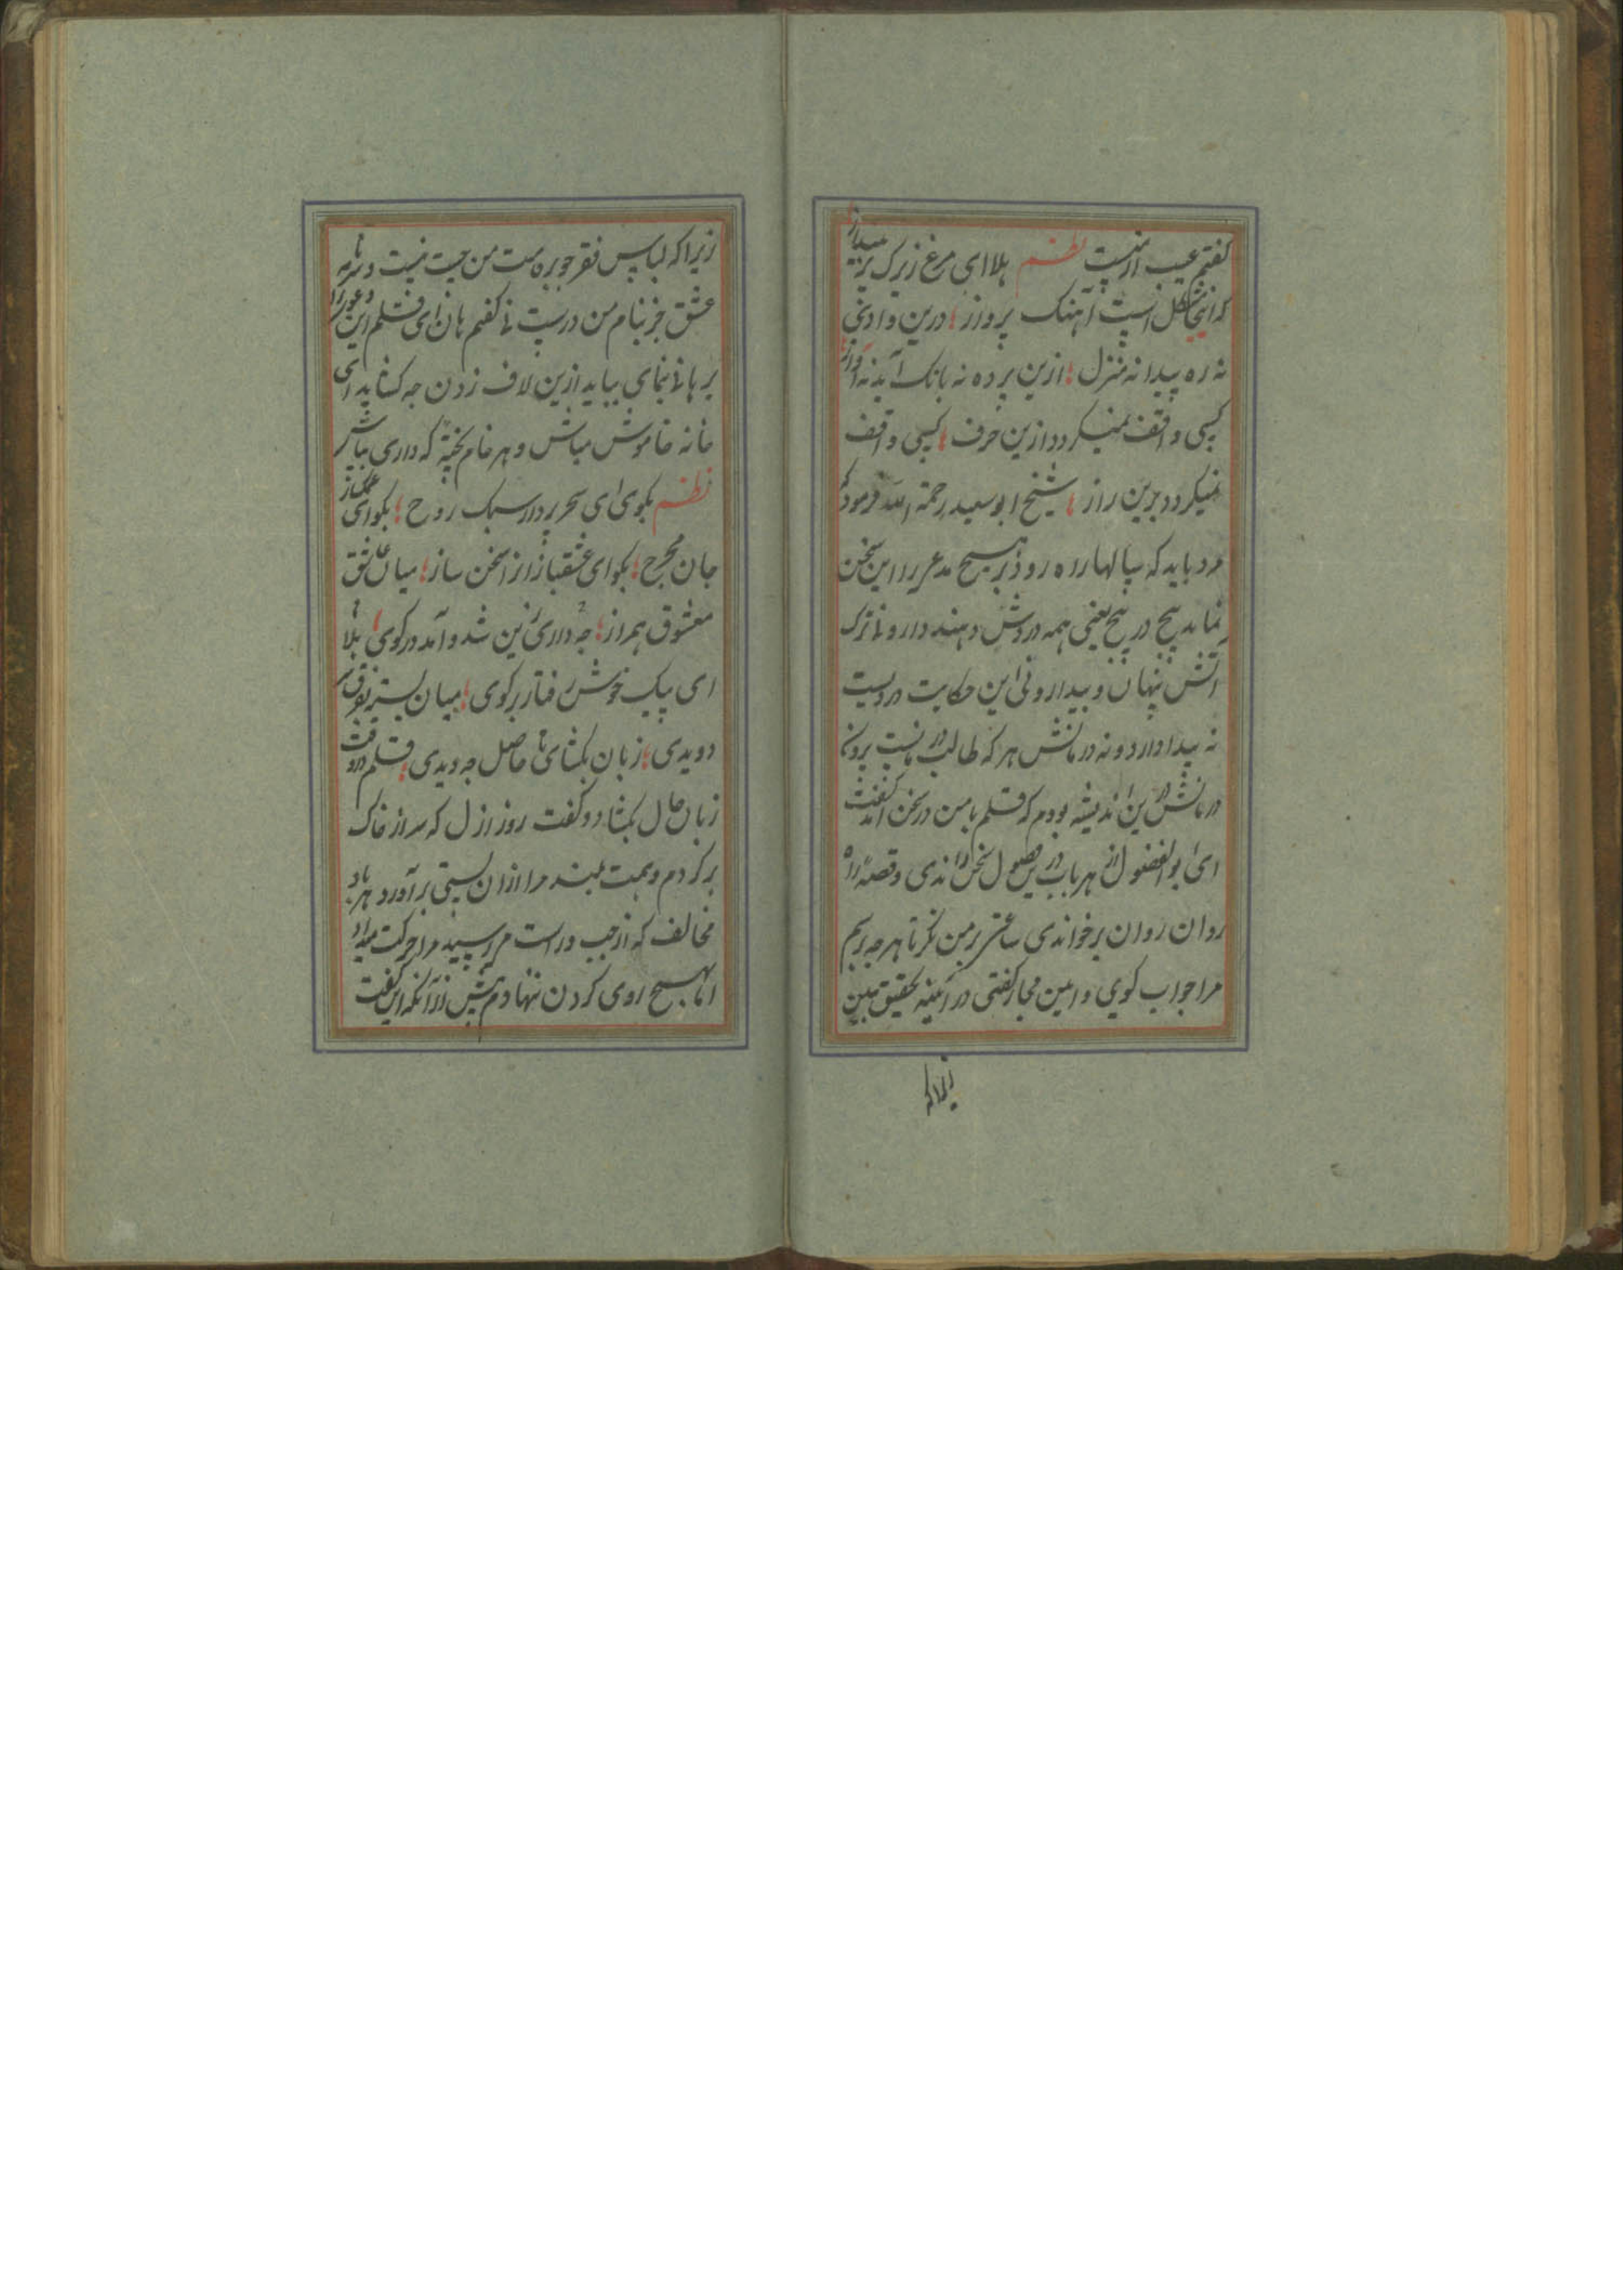 گفتم عیب از منست نظم هلا ای مرغ زیرک پر مینداز
که اینجا مشکل است آهنک پرواز درین وادی
نه ره پیدا نه منزل ازین پرده نه بانک آید نه آواز
کسی واقف نمیکردد ازین حرف کسی واقف
نمیکردد برین راز شیخ ابو سعید رحمة الله فرمود که
مرد باید که سالها راه رود بر هیچ مدعی را این سخن
نماید پیچ در پیچ یعنی همه دردش دهند دارو نه ترک
آتش پنهان و بیدار ونی این حکایت دردیست
نه پیدا دارد و نه درمانش هر که طالب درمانست
درمانش درین اندیشه بودم که قلم با من در سخن آمد کفت
ای بو الفضول از هر باب درین فصول سخن راندی و قصه
روان روان بر خواندی ساعتی بر من نکر تا هر چه پرسم
مرا جواب کوی و این مجاز کفتی در آیینه تحقیق ببین
زیرا که
زیرا که لباس فقر جز بر من چست نیست و نامه
عشق جز بنام من درست نه کفتم هان ای قلم این دعوی را
برهانی بنمای بیاید ازین لاف زدن چه کشاید ای
خانه خاموش مباش و هر خام پخته که داری بپاش
نظم بکوی ای سحر پرداز سبک روح بکو ای غمکسار
جان مجروح بکو ای عشقباز از سخن ساز میان عاشق
معشوق همراز چه داری زین شد و آمد درکوی هلا
ای پیک خوش رفتار بر کوی میان بستی بفرق سر
دویدی زبان بکشای تا حاصل چه دیدی قلم در وقت
زبان حال بکشاد و کفت روز ازل که سر از خاک
بر کردم و همت بلند مرا از آن پستی بر آورد هر باد
مخالف که از چپ و راست میرسید مرا حرکت میداد
اما بهیچ روی کردن ننهادم پیش از آنکه این کفت